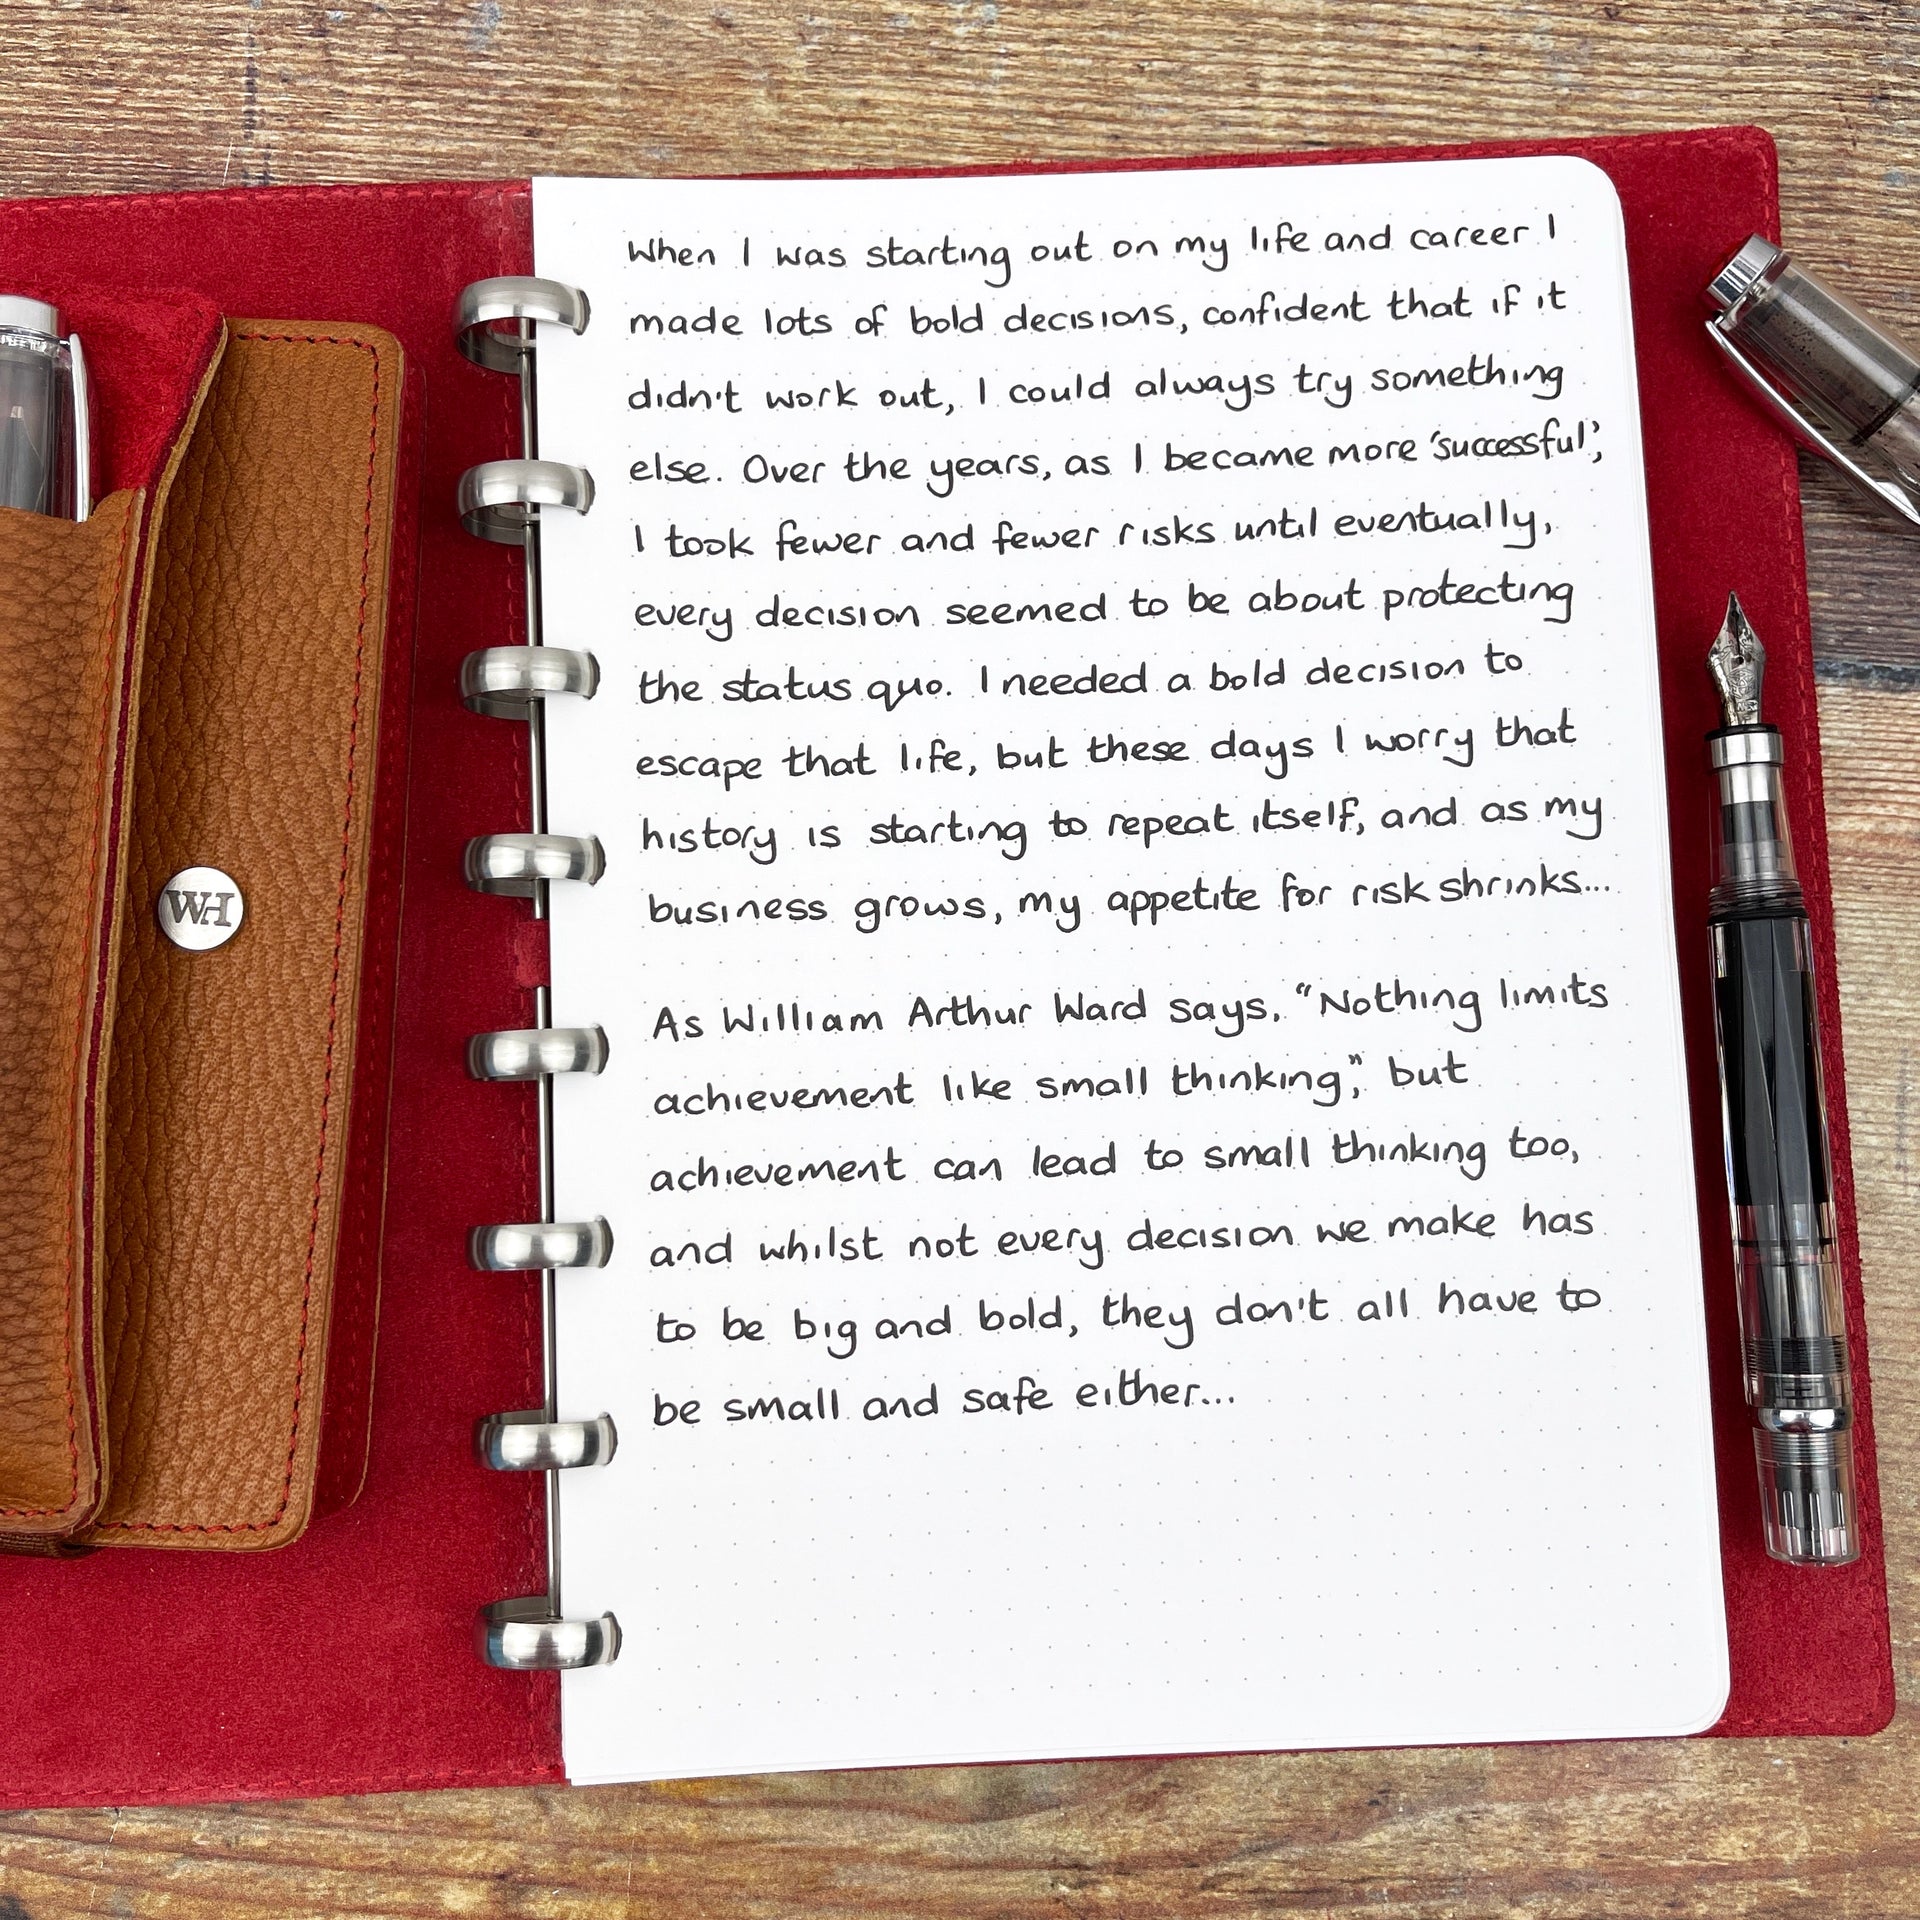 When I was starting out on my life and career I
made lots of bold decisions, confident that if it
didn't work out, I could always try something
else. Over the years, as I became more 'successful',
I took fewer and fewer risks until eventually,
every decision seemed to be about protecting
the status quo. I needed a bold decision to
escape that life, but these days I worry that
history is starting to repeat itself, and as my
business grows, my appetite for risk shrinks...
As William Arthur Ward says, "Nothing limits
achievement like small thinking", but
achievement can lead to small thinking too,
and whilst not every decision we make has
to be big and bold, they don't all have to
be small and safe either...
WH